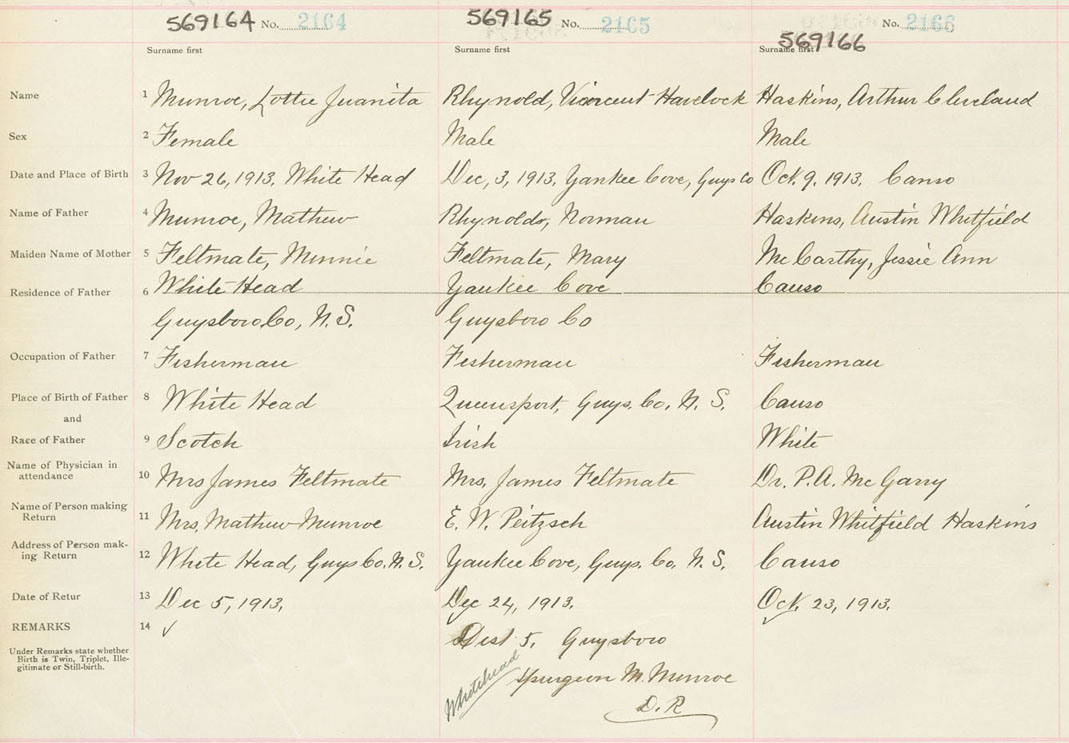 569164 No. 2164 569165 No. 2165 No. 2166
Surname first Surname first Surname first 569166
Name 1 Munroe, Lottie Juanita Rhynold, Vincent Havelock Haskins, Arthur Cleveland
Sex 2 Female Male Male
Date and Place of Birth 3 Nov 26, 1913. White Head Dec, 3, 1913. Yankee Cove, Guys Co Oct. 9. 1913. Canso
Name of Father 4 Munroe, Mathew Rhynolds, Norman Haskins, Austin Whitfield
Maiden Name of Mother 5 Feltmate, Minnie Feltmate, Mary McCarthy, Jessie Ann
Residence of Father 6 White Head Yankee Cove Canso
Guysboro Co, N.S. Guysboro Co
Occupation of Father 7 Fisherman Fisherman Fisherman
Place of Birth of Father 8 White Head Queensport, Guys. Co. N. S. Canso
and
Race of Father 9 Scotch Irish White
Name of Physician in
attendance 10 Mrs James Feltmate Mrs. James Feltmate Dr. P.A. McGarry
Name of Person making
Return 11 Mrs. Mathew Munroe E. W. Peitzsch Austin Whitfield Haskins
Address of Person mak-
ing Return 12 White Head, Guys Co. N.S. Yankee Cove, Guys. Co. N. S. Canso
Date of Retur 13 Dec 5, 1913. Dec 24, 1913. Oct. 23, 1913.
REMARKS 14 Dist 5. Guysboro
Under Remarks state whether
Birth is Twin, Triplet, Ille-
gitimate or Still-birth.
Whitehead Spurgeon M. Munroe
D. R